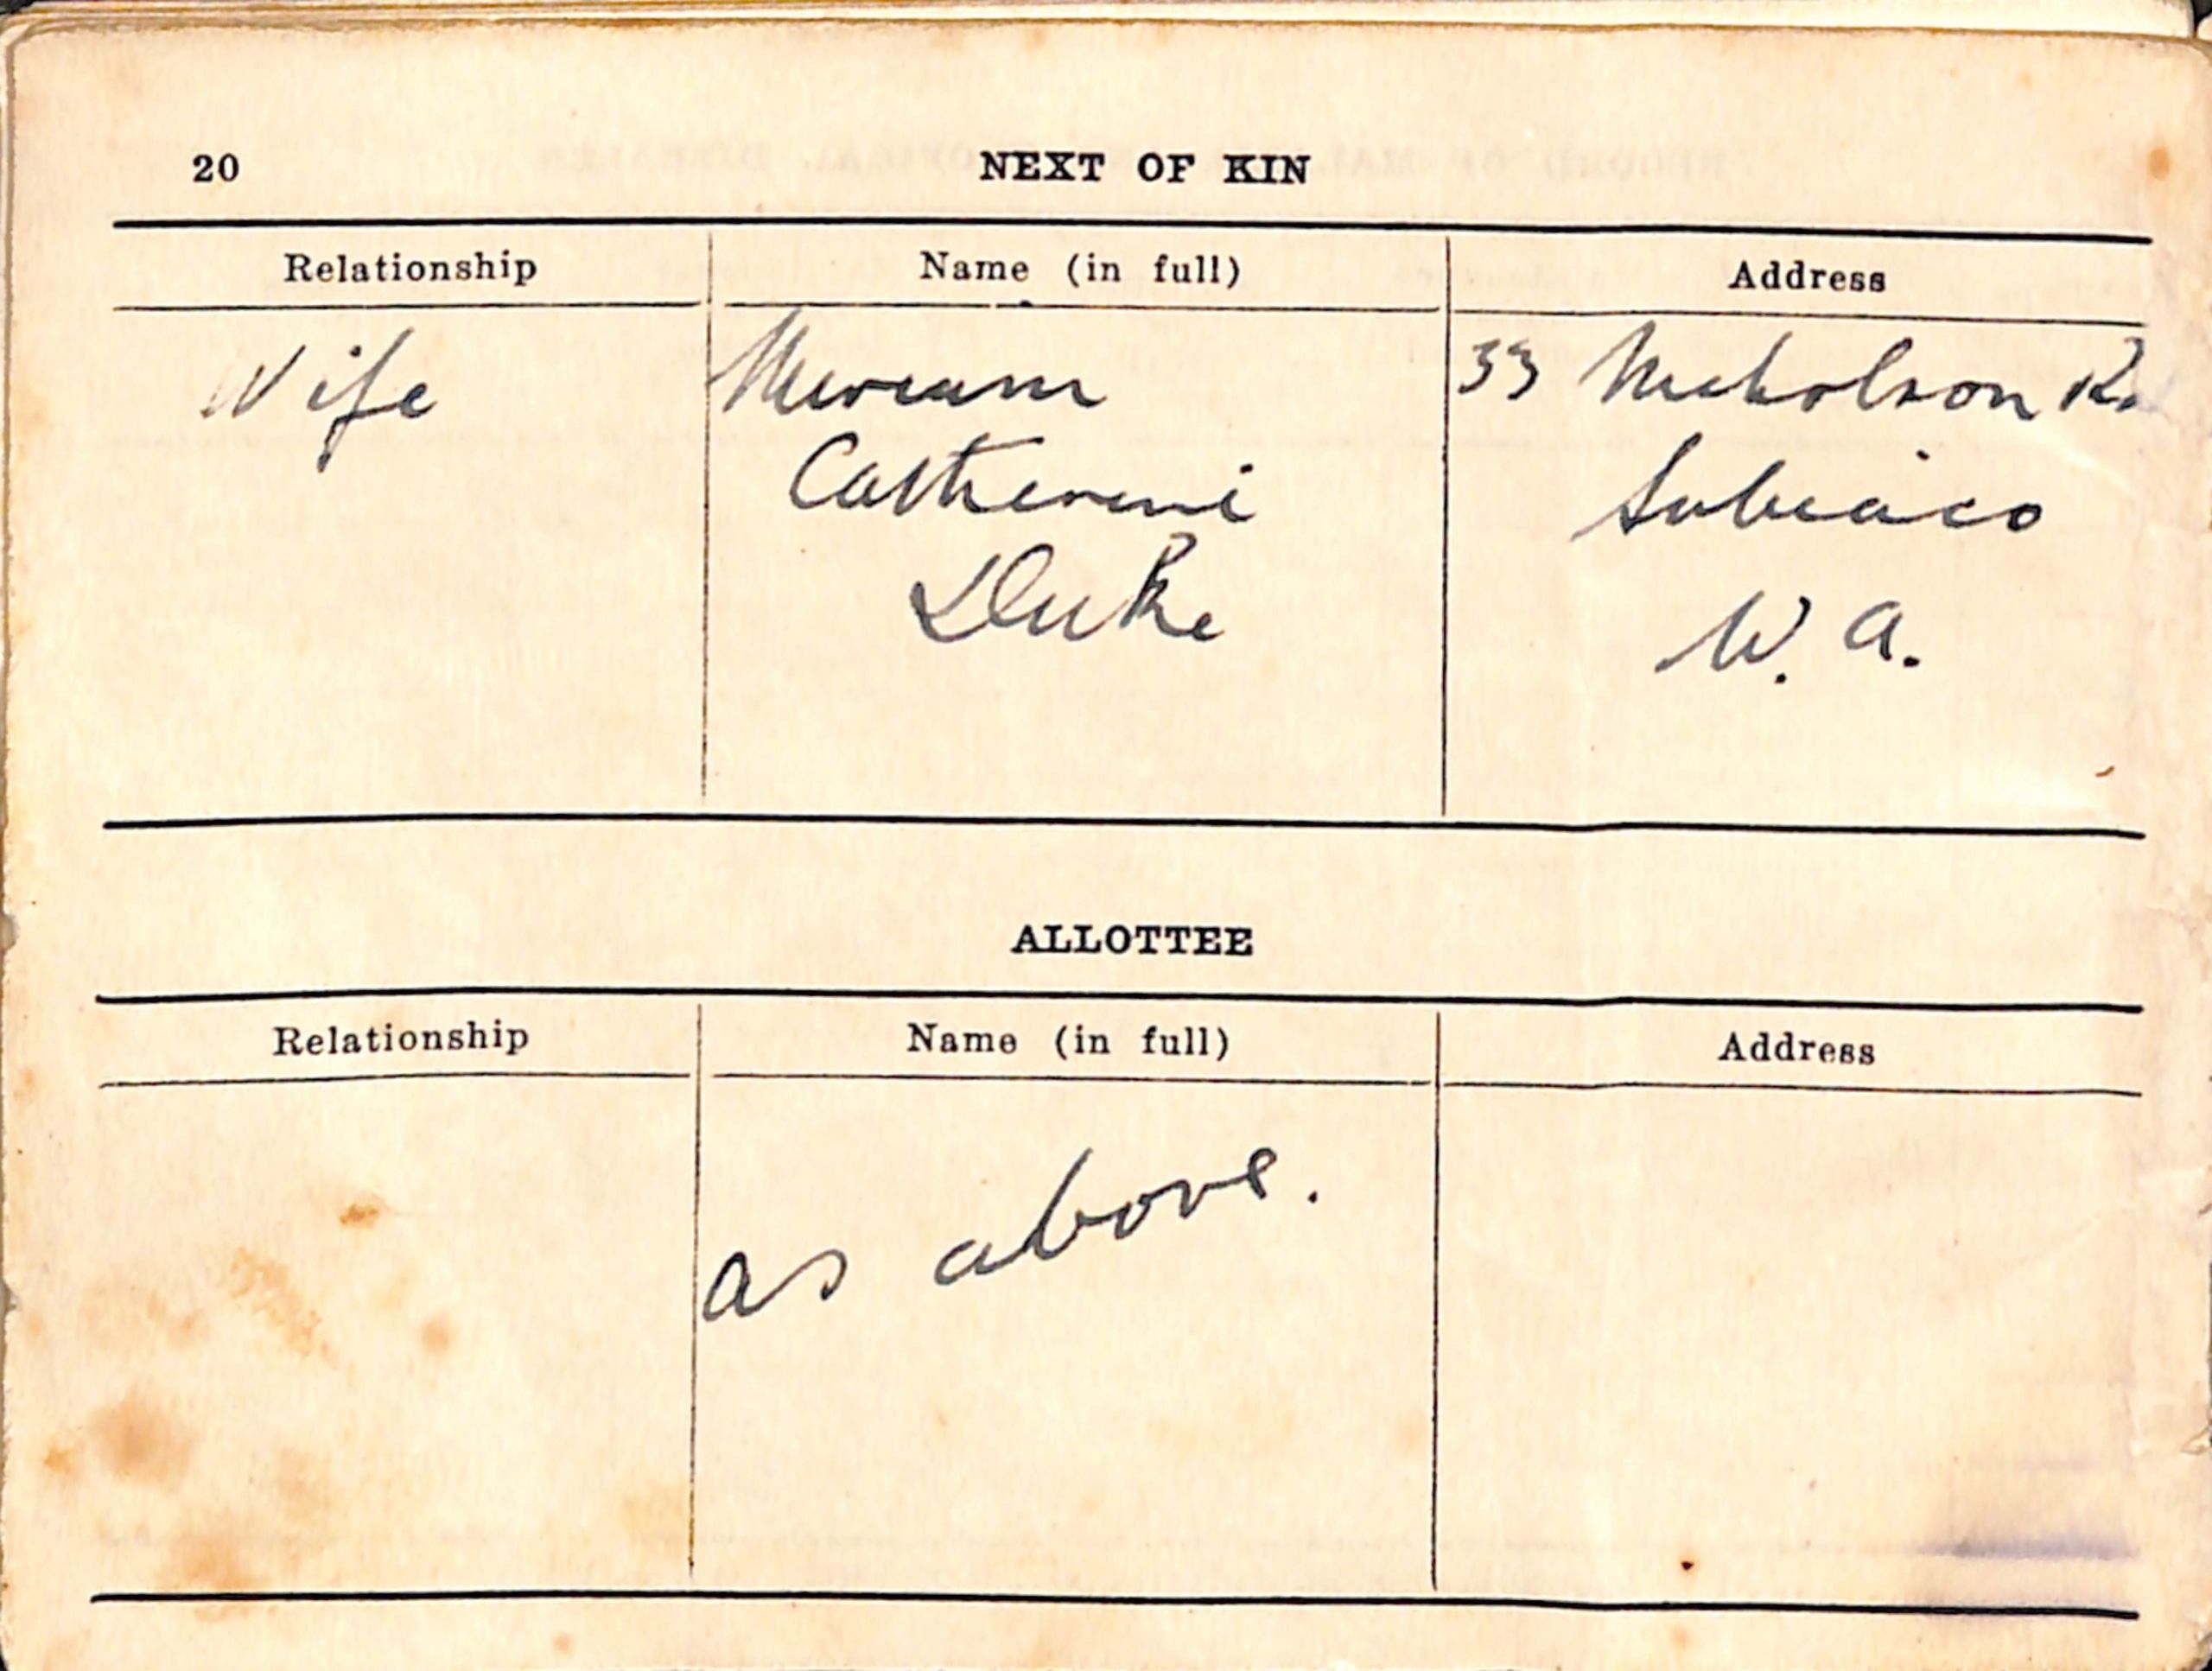 20 NEXT OF KIN
Relationship Name (in full) Address
Wife Miriam 33 Nicholson Rd
Catherine Subiaco
Duke W. A.
ALLOTTEE
Relationship Name (in full) Address
as above.